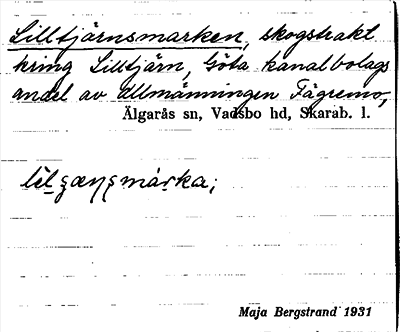 Lilltjärnsmarken, skogstrakt
kring Lilltjärn, Göta kanalbolags
andel av Allmänningen Fägremo,
Älgarås sn, Vadsbo hd, Skarab. l.
Maja Bergstrand 1931